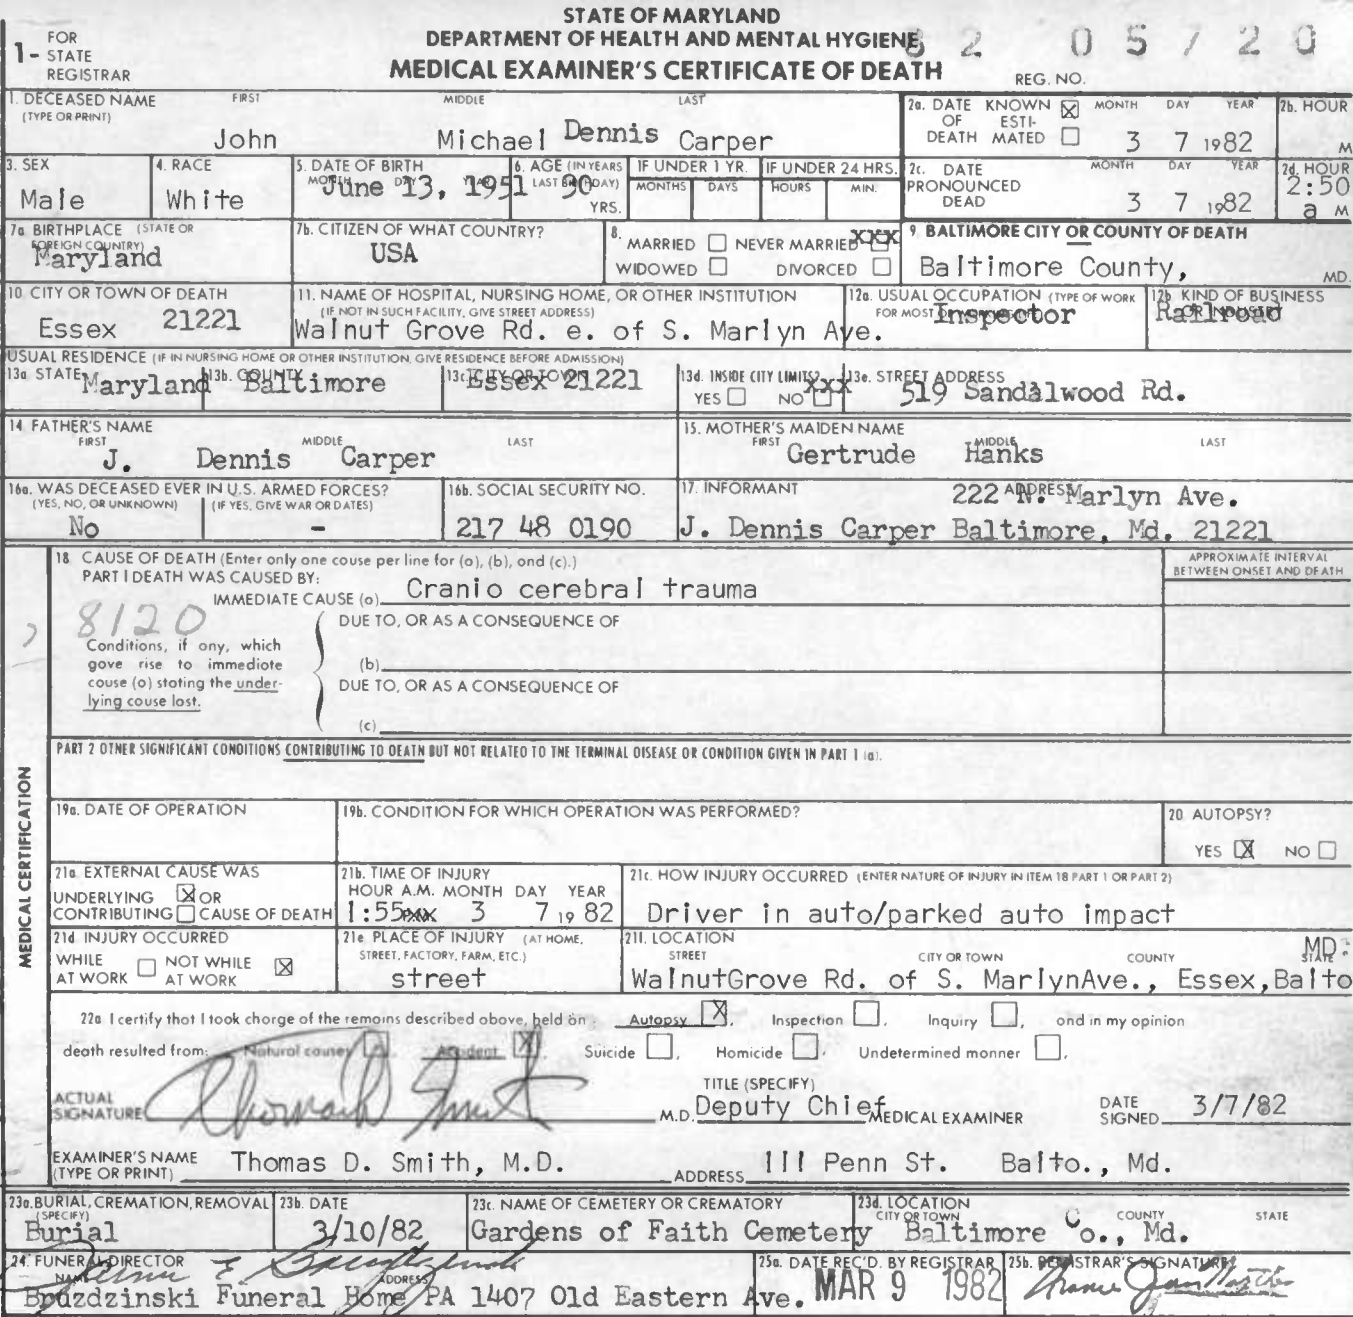 STATE OF MARYLAND
DEPARTMENT OF HEALTH AND MENTAL HYGIENE
MEDICAL EXAMINER'S CERTIFICATE OF DEATH
1- FOR STATE REGISTRAR
82 05720
REG. NO.
1. DECEASED NAME (TYPE OR PRINT) FIRST MIDDLE LAST
John Michael Dennis Carper
2a. DATE OF DEATH KNOWN X ESTIMATED MONTH DAY YEAR
3 7 1982
2b. HOUR M
3. SEX
Male
4. RACE
White
5. DATE OF BIRTH MONTH DAY YEAR
June 13, 1951
6. AGE (IN YEARS LAST BIRTHDAY)
30 YRS.
IF UNDER 1 YR. MONTHS DAYS
IF UNDER 24 HRS. HOURS MIN.
2c. DATE PRONOUNCED DEAD MONTH DAY YEAR
3 7 1982
2d. HOUR
2:50
a M
7a BIRTHPLACE (STATE OR FOREIGN COUNTRY)
Maryland
7b. CITIZEN OF WHAT COUNTRY?
USA
8. MARRIED NEVER MARRIED xxx
WIDOWED DIVORCED
9. BALTIMORE CITY OR COUNTY OF DEATH
Baltimore County, MD.
10. CITY OR TOWN OF DEATH
Essex 21221
11. NAME OF HOSPITAL, NURSING HOME, OR OTHER INSTITUTION
(IF NOT IN SUCH FACILITY, GIVE STREET ADDRESS)
Walnut Grove Rd. e. of S. Marlyn Ave.
12a. USUAL OCCUPATION (TYPE OF WORK FOR MOST
Inspector
12b. KIND OF BUSINESS OR INDUSTRY
Railroad
USUAL RESIDENCE (IF IN NURSING HOME OR OTHER INSTITUTION, GIVE RESIDENCE BEFORE ADMISSION)
13a. STATE Maryland
13b. COUNTY Baltimore
13c. CITY OR TOWN Essex 21221
13d. INSIDE CITY LIMITS? YES NO xxx
13e. STREET ADDRESS
519 Sandalwood Rd.
14. FATHER'S NAME FIRST MIDDLE LAST
J. Dennis Carper
15. MOTHER'S MAIDEN NAME FIRST MIDDLE LAST
Gertrude Hanks
16a. WAS DECEASED EVER IN U.S. ARMED FORCES?
(YES, NO, OR UNKNOWN) (IF YES, GIVE WAR OR DATES)
No -
16b. SOCIAL SECURITY NO.
217 48 0190
17. INFORMANT ADDRESS
222 N. Marlyn Ave.
J. Dennis Carper Baltimore, Md. 21221
MEDICAL CERTIFICATION
18. CAUSE OF DEATH (Enter only one cause per line for (a), (b), and (c).)
APPROXIMATE INTERVAL BETWEEN ONSET AND DEATH
PART I DEATH WAS CAUSED BY:
IMMEDIATE CAUSE (a) Cranio cerebral trauma
8120
DUE TO, OR AS A CONSEQUENCE OF
Conditions, if any, which
gave rise to immediate
cause (a) stating the under-
lying cause last.
(b)
DUE TO, OR AS A CONSEQUENCE OF
(c)
PART 2 OTHER SIGNIFICANT CONDITIONS CONTRIBUTING TO DEATH BUT NOT RELATED TO THE TERMINAL DISEASE OR CONDITION GIVEN IN PART 1 (a).
19a. DATE OF OPERATION
19b. CONDITION FOR WHICH OPERATION WAS PERFORMED?
20 AUTOPSY?
YES X NO
21a. EXTERNAL CAUSE WAS
UNDERLYING X OR
CONTRIBUTING CAUSE OF DEATH
21b. TIME OF INJURY
HOUR A.M. MONTH DAY YEAR
1:55 3 7 1982
21c. HOW INJURY OCCURRED (ENTER NATURE OF INJURY IN ITEM 18 PART 1 OR PART 2)
Driver in auto/parked auto impact
21d. INJURY OCCURRED
WHILE AT WORK NOT WHILE AT WORK X
21e. PLACE OF INJURY (AT HOME, STREET, FACTORY, FARM, ETC.)
street
21f. LOCATION STREET CITY OR TOWN COUNTY STATE
MD.
WalnutGrove Rd. of S. MarlynAve., Essex, Balto
22a I certify that I took charge of the remains described above, held an Autopsy X, Inspection, Inquiry, and in my opinion
death resulted from: Natural causes, Accident X, Suicide, Homicide, Undetermined manner.
ACTUAL SIGNATURE Thomas D. Smith M.D.
TITLE (SPECIFY)
Deputy Chief MEDICAL EXAMINER
DATE SIGNED 3/7/82
EXAMINER'S NAME (TYPE OR PRINT) Thomas D. Smith, M.D.
ADDRESS 111 Penn St. Balto., Md.
23a. BURIAL, CREMATION, REMOVAL (SPECIFY)
Burial
23b. DATE
3/10/82
23c. NAME OF CEMETERY OR CREMATORY
Gardens of Faith Cemetery
23d. LOCATION CITY OR TOWN COUNTY STATE
Baltimore Co., Md.
24. FUNERAL DIRECTOR NAME ADDRESS
Bruzdzinski Funeral Home PA 1407 Old Eastern Ave.
25a. DATE REC'D. BY REGISTRAR
MAR 9 1982
25b. REGISTRAR'S SIGNATURE